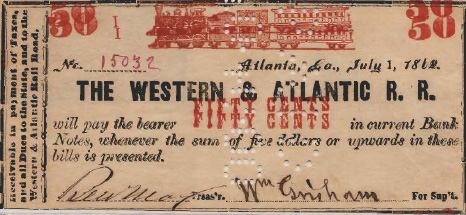 50 50
I
Receivable in payment of Taxes,
and all Dues to the State, and to the
Western & Atlantic Rail Road.
No. 15032 Atlanta, Ga., July 1, 1862.
THE WESTERN & ATLANTIC R. R.
FIFTY CENTS
FIFTY CENTS
will pay the bearer in current Bank
Notes, whenever the sum of five dollars or upwards in these
bills is presented.
Treas'r. Wm Grisham For Sup't.